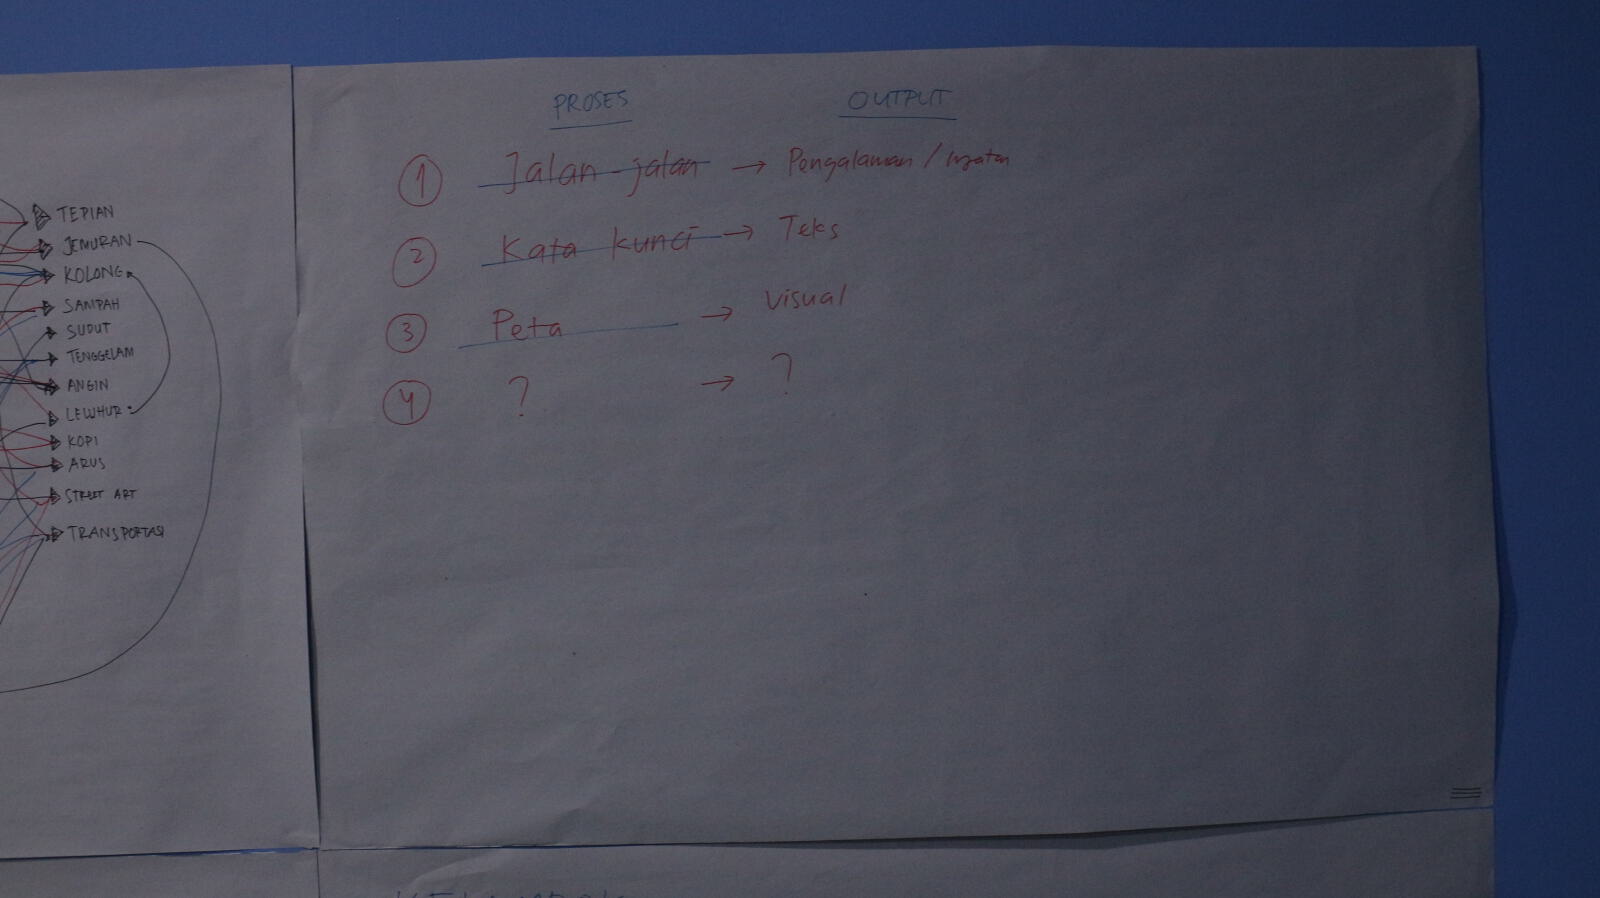 TEPIAN
JEMURAN
KOLONG
SAMPAH
SUDUT
TENGGELAM
ANGIN
LEWHUR
KOPI
ARUS
STREET ART
TRANSPORTASI
PROSES OUTPUT
1 Jalan-jalan → Pengalaman /
2 Kata kunci → Teks
3 Peta → Visual
4 ? → ?